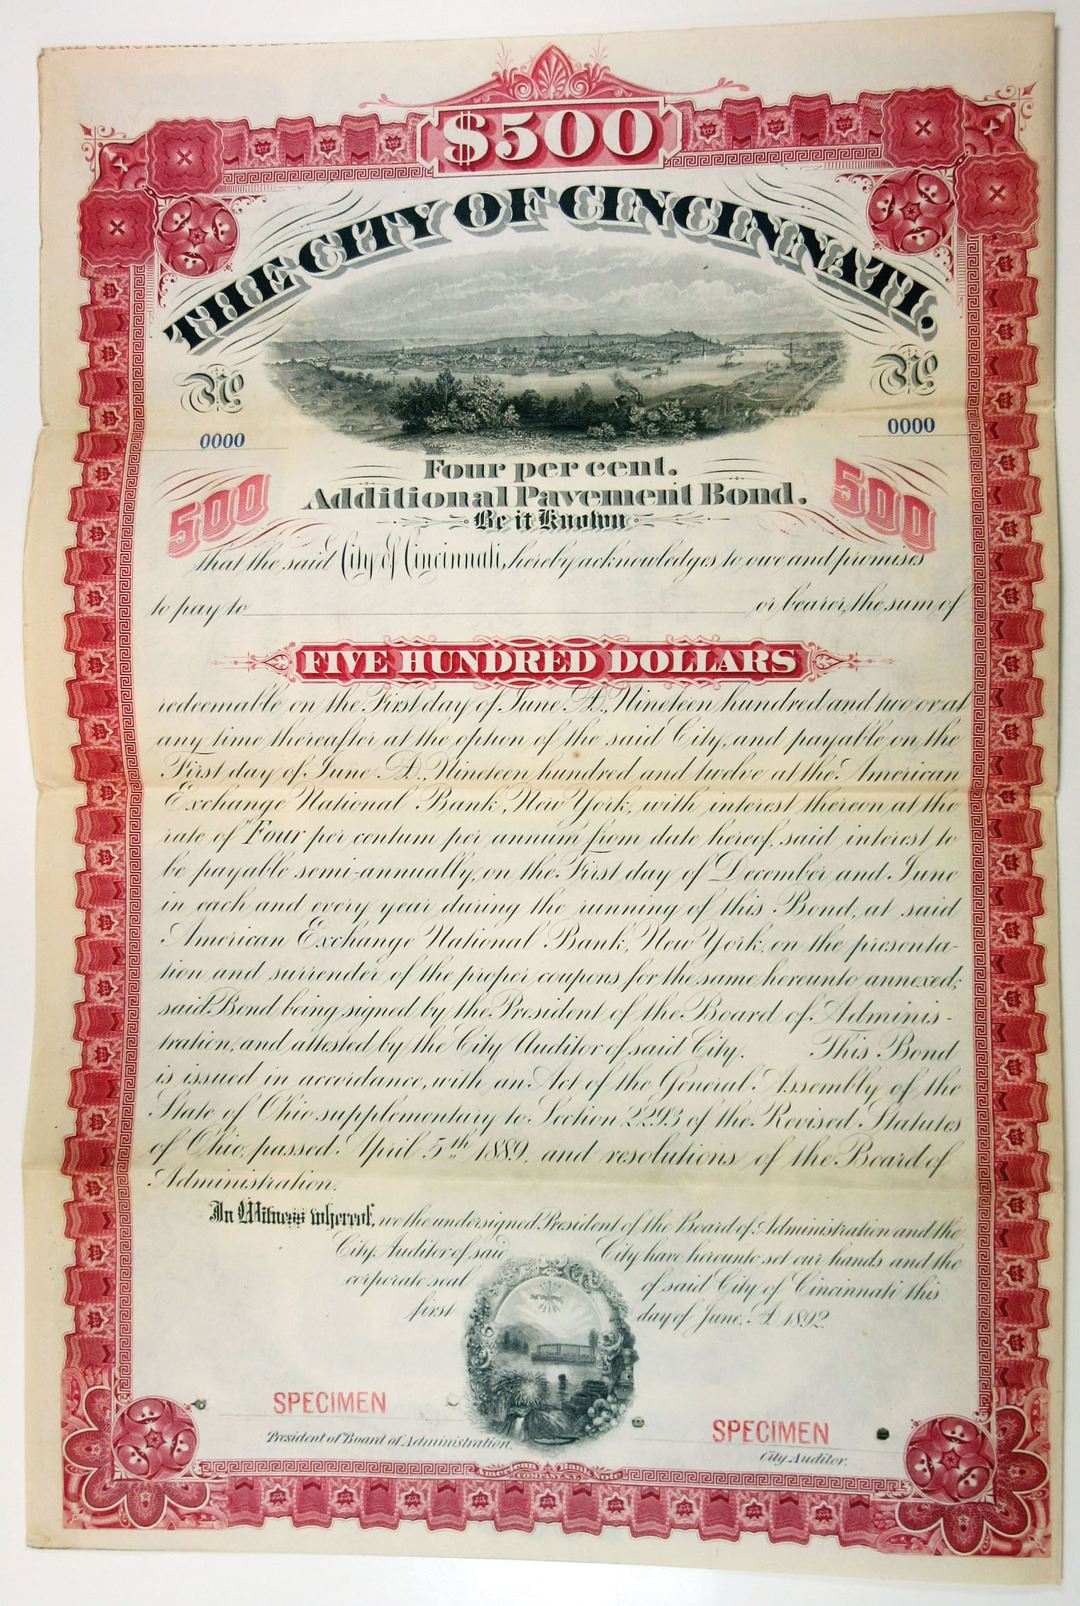 $500
THE CITY OF CINCINNATI.
No No
0000 0000
Four per cent.
500 Additional Pavement Bond. 500
Be it Known
that the said City of Cincinnati, hereby acknowledges to owe and promises
to pay to or bearer, the sum of
FIVE HUNDRED DOLLARS
redeemable on the First day of June A.D. Nineteen hundred and two or at
any time thereafter at the option of the said City, and payable on the
First day of June A.D. Nineteen hundred and twelve at the American
Exchange National Bank, New York, with interest thereon at the
rate of Four per centum per annum from date hereof, said interest to
be payable semi-annually, on the First day of December and June
in each and every year during the running of this Bond, at said
American Exchange National Bank, New York, on the presenta-
tion and surrender of the proper coupons for the same hereunto annexed;
said Bond being signed by the President of the Board of Adminis-
tration, and attested by the City Auditor of said City. This Bond
is issued in accordance, with an Act of the General Assembly of the
State of Ohio supplementary to Section 2293 of the Revised Statutes
of Ohio, passed April 5th 1889, and resolutions of the Board of
Administration.
In Witness whereof, we the undersigned President of the Board of Administration and the
City Auditor of said City have hereunto set our hands and the
corporate seal of said City of Cincinnati this
first day of June, A.D. 1892
SPECIMEN SPECIMEN
President of Board of Administration. City Auditor.
American Bank Note
COMPANY N.Y.